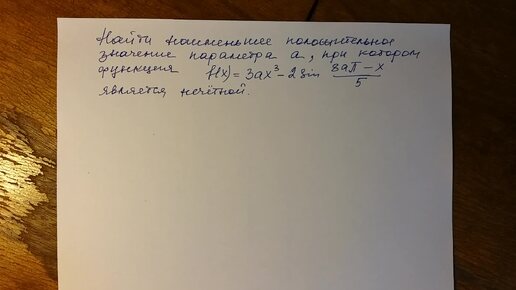 Найти наименьшее положительное
значение параметра a, при котором
функция f(x) = 3ax³ - 2 sin (8aπ - x)/5
является нечётной.